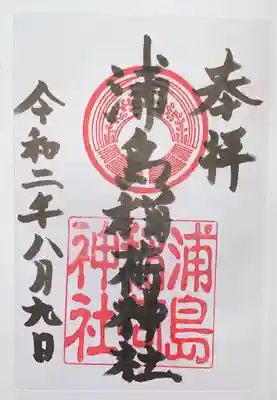 奉拝
浦島稲荷神社
令和二年八月九日
浦島
稲荷
神社